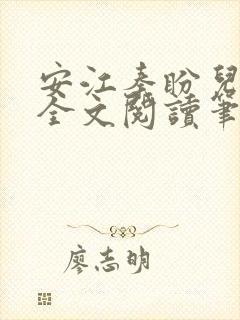 安江秦盼兒
全文閱讀筆
廖志明